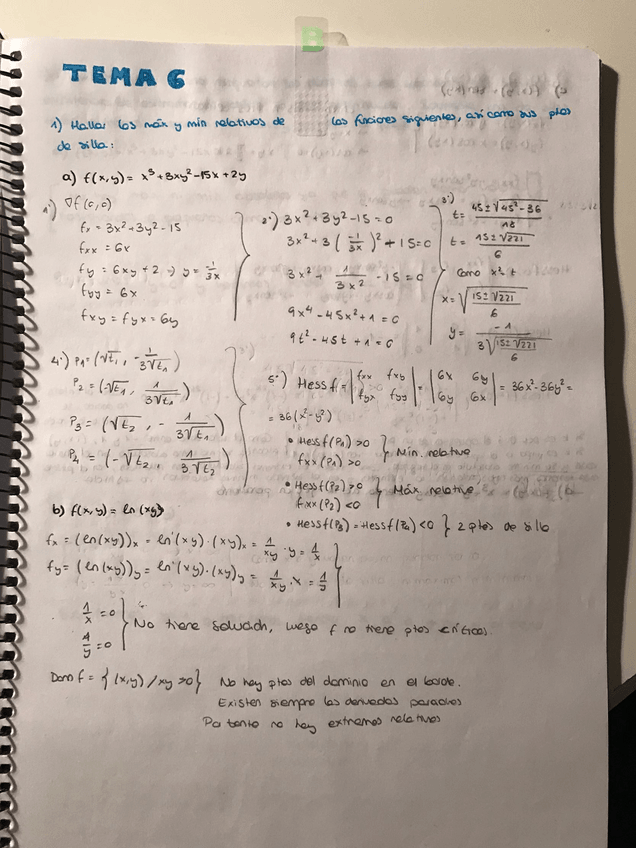 TEMA 6
1) Hallar los máx y mín relativos de las funciones siguientes, así como sus ptos
de silla:
a) f(x,y) = x³+3xy²-15x+2y
1º) ∇f(c,c)
fx = 3x²+3y²-15
fxx = 6x
fy = 6xy+2 → y = -1/3x
fyy = 6x
fxy = fyx = 6y
2º) 3x²+3y²-15=0
3x²+3(-1/3x)²+15=0
3x²+1/3x²-15=0
9x⁴-45x²+1=0
9t²-45t+1=0
3º) t = 45±√45²-36/18
t = 15±√221/6
Como x²=t
x = √15±√221/6
y = -1/3√15±√221/6
4º) P1=(√t1, -1/3√t1)
P2=(-√t1, 1/3√t1)
P3=(√t2, -1/3√t1)
P4=(-√t2, 1/3√t2)
5º) Hess f = |fxx fxy fyx fyy| = |6x 6y 6y 6x| = 36x²-36y² =
= 36(x²-y²)
• Hess f(P1)>0
fxx(P1)>0 } Mín. relativo
• Hess f(P2)>0
fxx(P2)<0 } Máx relativo
• Hess f(P3) = Hess f(P4) <0 } 2 ptos de silla
b) f(x,y) = ln(xy)
fx = (ln(xy))x = ln'(xy)·(xy)x = 1/xy · y = 1/x
fy = (ln(xy))y = ln'(xy)·(xy)y = 1/xy · x = 1/y
1/x = 0
1/y = 0 } No tiene solución, luego f no tiene ptos críticos.
Dom f = {(x,y) / xy >0} No hay ptos del dominio en el borde.
Existen siempre las derivadas parciales
Por tanto no hay extremos relativos